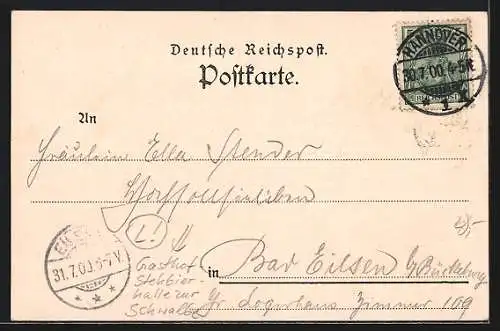 Deutsche Reichspost.
Postkarte.
HANNOVER
30.7.00.4-5N
1
An
Fräulein Ella Stender
L!
31.7.00.
Gasthof
Stehbier-
halle zur
Schwalbe
in Bad Eilsen b/Bückeburg
Gr. Logierhaus Zimmer 109